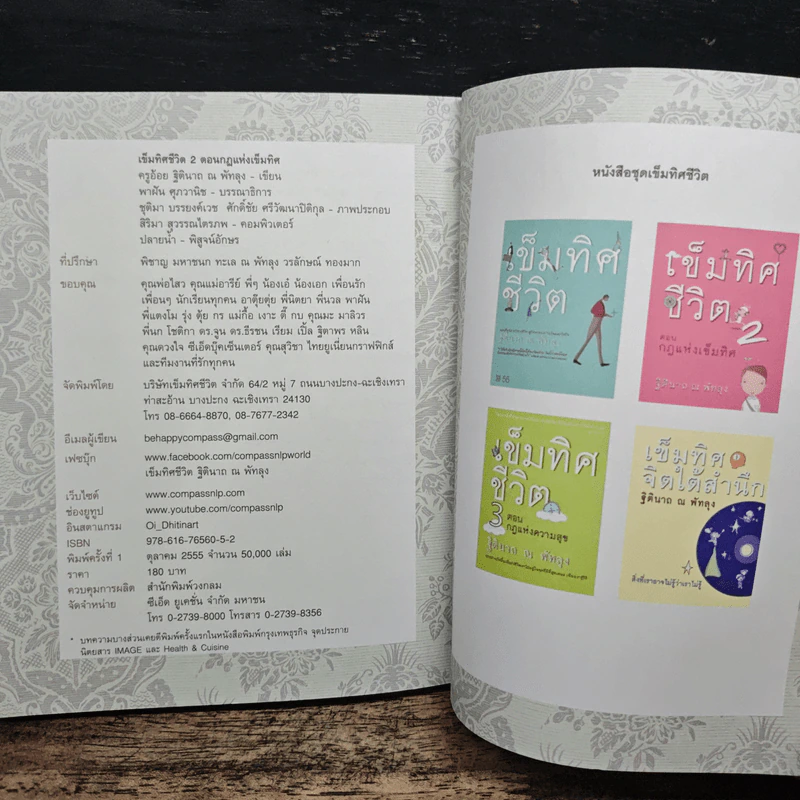 เข็มทิศชีวิต 2 ตอนกฎแห่งเข็มทิศ
ครูอ้อย ฐิตินาถ ณ พัทลุง - เขียน
พาฝัน ศุภวานิช - บรรณาธิการ
ชุติมา บรรยงค์เวช ศักดิ์ชัย ศรีวัฒนาปิติกุล - ภาพประกอบ
สิริมา สุวรรณไตรภพ - คอมพิวเตอร์
ปลายน้ำ - พิสูจน์อักษร
ที่ปรึกษา พิชาญ มหาชนก ทะเล ณ พัทลุง วรลักษณ์ ทองมาก
ขอบคุณ คุณพ่อไสว คุณแม่อารีย์ พี่ๆ น้องเอ๋ น้องเอก เพื่อนรัก
เพื่อนๆ นักเรียนทุกคน อาตุ้ยตุ่ย พี่นิตยา พี่นวล พาฝัน
พี่แตงโม รุ่ง ตุ้ย กร แม่กื้อ เงาะ ตี้ กบ คุณมะ มาลิวร
พี่นก โชติกา ดร.จูน ดร.ธีรชน เรียม เปิ้ล ฐิตาพร หลิน
คุณดวงใจ ซีเอ็ดบุ๊คเซ็นเตอร์ คุณสุวิชา ไทยยูเนี่ยนกราฟฟิกส์
และทีมงานที่รักทุกคน
จัดพิมพ์โดย บริษัทเข็มทิศชีวิต จำกัด 64/2 หมู่ 7 ถนนบางปะกง-ฉะเชิงเทรา
ท่าสะอ้าน บางปะกง ฉะเชิงเทรา 24130
โทร 08-6664-8870, 08-7677-2342
อีเมลผู้เขียน behappycompass@gmail.com
เฟซบุ๊ก www.facebook.com/compassnlpworld
เข็มทิศชีวิต ฐิตินาถ ณ พัทลุง
เว็บไซต์ www.compassnlp.com
ช่องยูทูป www.youtube.com/compassnlp
อินสตาแกรม Oi_Dhitinart
ISBN 978-616-76560-5-2
พิมพ์ครั้งที่ 1 ตุลาคม 2555 จำนวน 50,000 เล่ม
ราคา 180 บาท
ควบคุมการผลิต สำนักพิมพ์วงกลม
จัดจำหน่าย ซีเอ็ด ยูเคชั่น จำกัด มหาชน
โทร 0-2739-8000 โทรสาร 0-2739-8356
* บทความบางส่วนเคยตีพิมพ์ครั้งแรกในหนังสือพิมพ์กรุงเทพธุรกิจ จุดประกาย
นิตยสาร IMAGE และ Health & Cuisine
หนังสือชุดเข็มทิศชีวิต
เข็มทิศ
ชีวิต
ฐิตินาถ ณ พัทลุง
เข็มทิศ
ชีวิต 2
ตอน
กฎแห่งเข็มทิศ
ฐิตินาถ ณ พัทลุง
เข็มทิศ
ชีวิต
3
ตอน
กฎแห่งความสุข
ฐิตินาถ ณ พัทลุง
เข็มทิศ
จิตใต้สำนึก
ฐิตินาถ ณ พัทลุง
สิ่งที่เราอาจไม่รู้ว่าเราไม่รู้